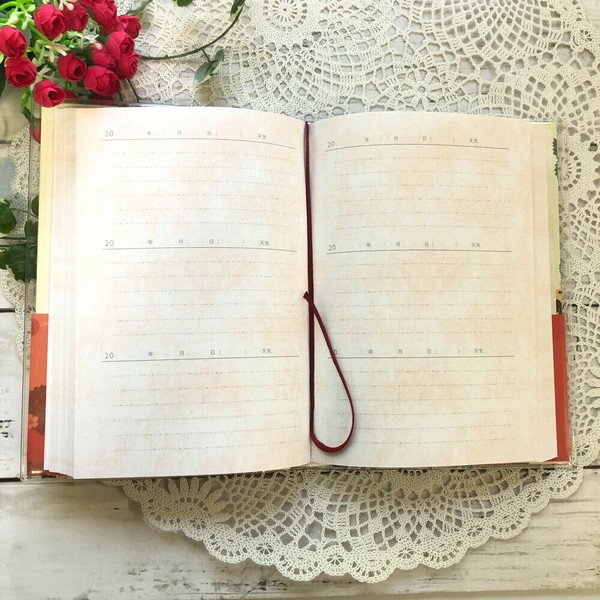 20 年 月 日( ) 天気
20 年 月 日( ) 天気
20 年 月 日( ) 天気
20 年 月 日( ) 天気
20 年 月 日( ) 天気
20 年 月 日( ) 天気